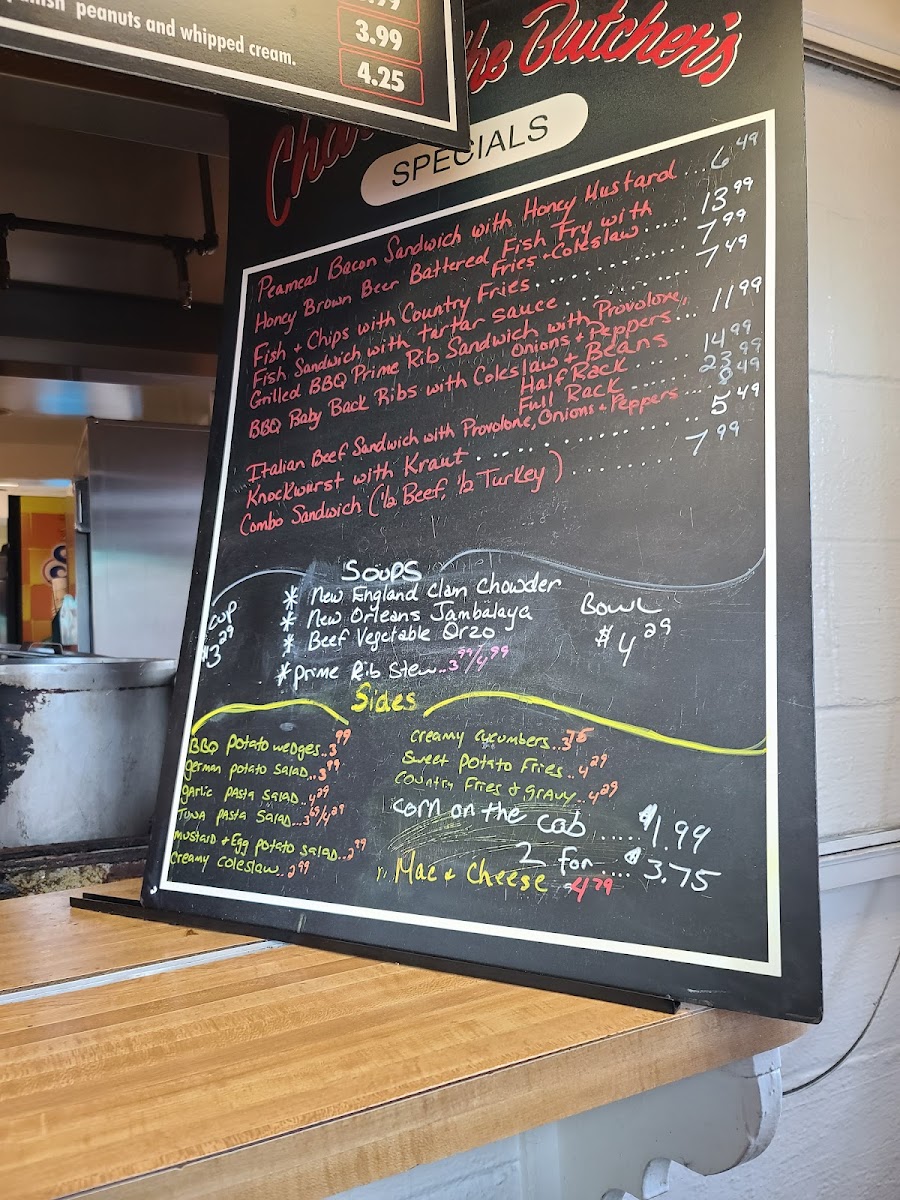 peanuts and whipped cream.
3.99
4.25
the Butcher's
SPECIALS
Peameal Bacon Sandwich with Honey Mustard ... 6.49
Honey Brown Beer Battered Fish Fry with
Fries + Coleslaw ..... 13.99
Fish + Chips with Country Fries ........... 7.99
Fish Sandwich with tartar sauce ........ 7.49
Grilled BBQ Prime Rib Sandwich with Provolone,
Onions + Peppers... 11.99
BBQ Baby Back Ribs with Coleslaw + Beans
Half Rack ...... 14.99
Full Rack ...... 23.99
Italian Beef Sandwich with Provolone, Onions + Peppers ... 8.49
Knockwurst with Kraut .............. 5.49
Combo Sandwich (1/2 Beef, 1/2 Turkey) ......... 7.99
Soups
Cup
$3.29
* New England Clam Chowder
* New Orleans Jambalaya
* Beef Vegetable Orzo
* Prime Rib Stew..3.99/4.99
Bowl
$4.29
Sides
BBQ Potato wedges..3.99
German Potato Salad..3.99
Garlic Pasta Salad..4.29
Tuna Pasta Salad...3.69/4.29
Mustard + Egg Potato Salad..2.99
Creamy Coleslaw..2.99
Creamy cucumbers..3.75
Sweet Potato Fries..4.29
Country Fries + Gravy..4.29
Corn on the cob ..... $1.99
2 for .... $3.75
Mac + Cheese 4.79